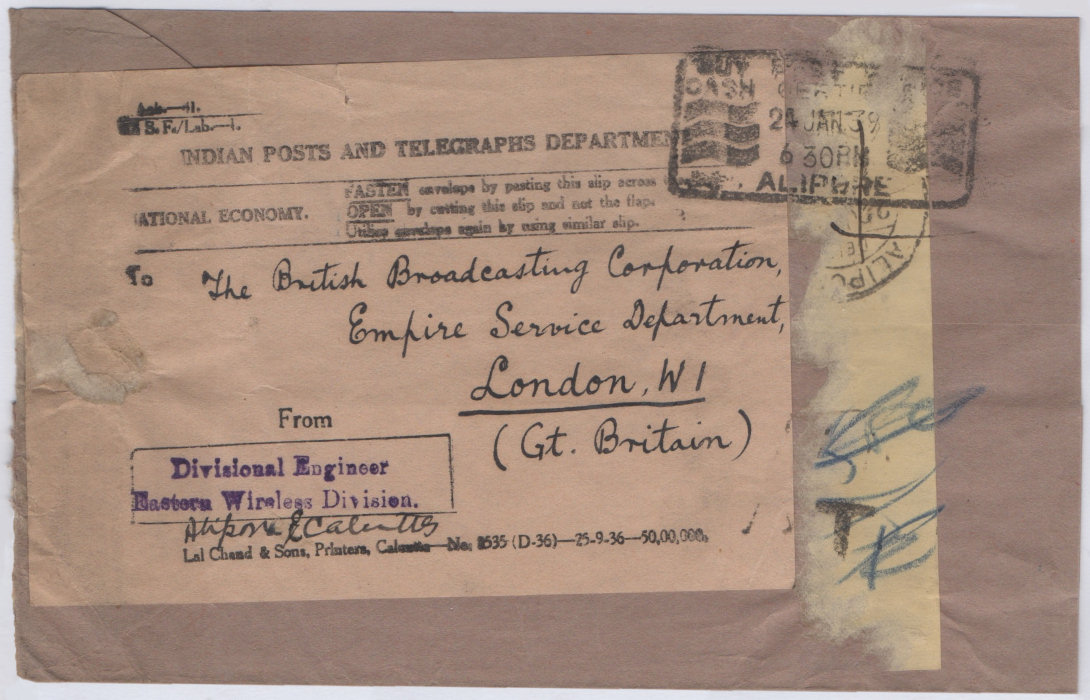 Ack.—41.
S. F./Lab.—1.
INDIAN POSTS AND TELEGRAPHS DEPARTMEN
ATIONAL ECONOMY.
FASTEN envelope by pasting this slip across
OPEN by cutting this slip and not the flap.
Utilise envelope again by using similar slip.
BUY
CASH
24 JAN 39
6 30PM
ALIPORE
ALIPO
To The British Broadcasting Corporation,
Empire Service Department,
London, W1
(Gt. Britain)
From
Divisional Engineer
Eastern Wireless Division.
Alipore Calcutta
Lal Chand & Sons, Printers, Calcutta—No. 3535 (D-36)—25-9-36—50,00,000.
T